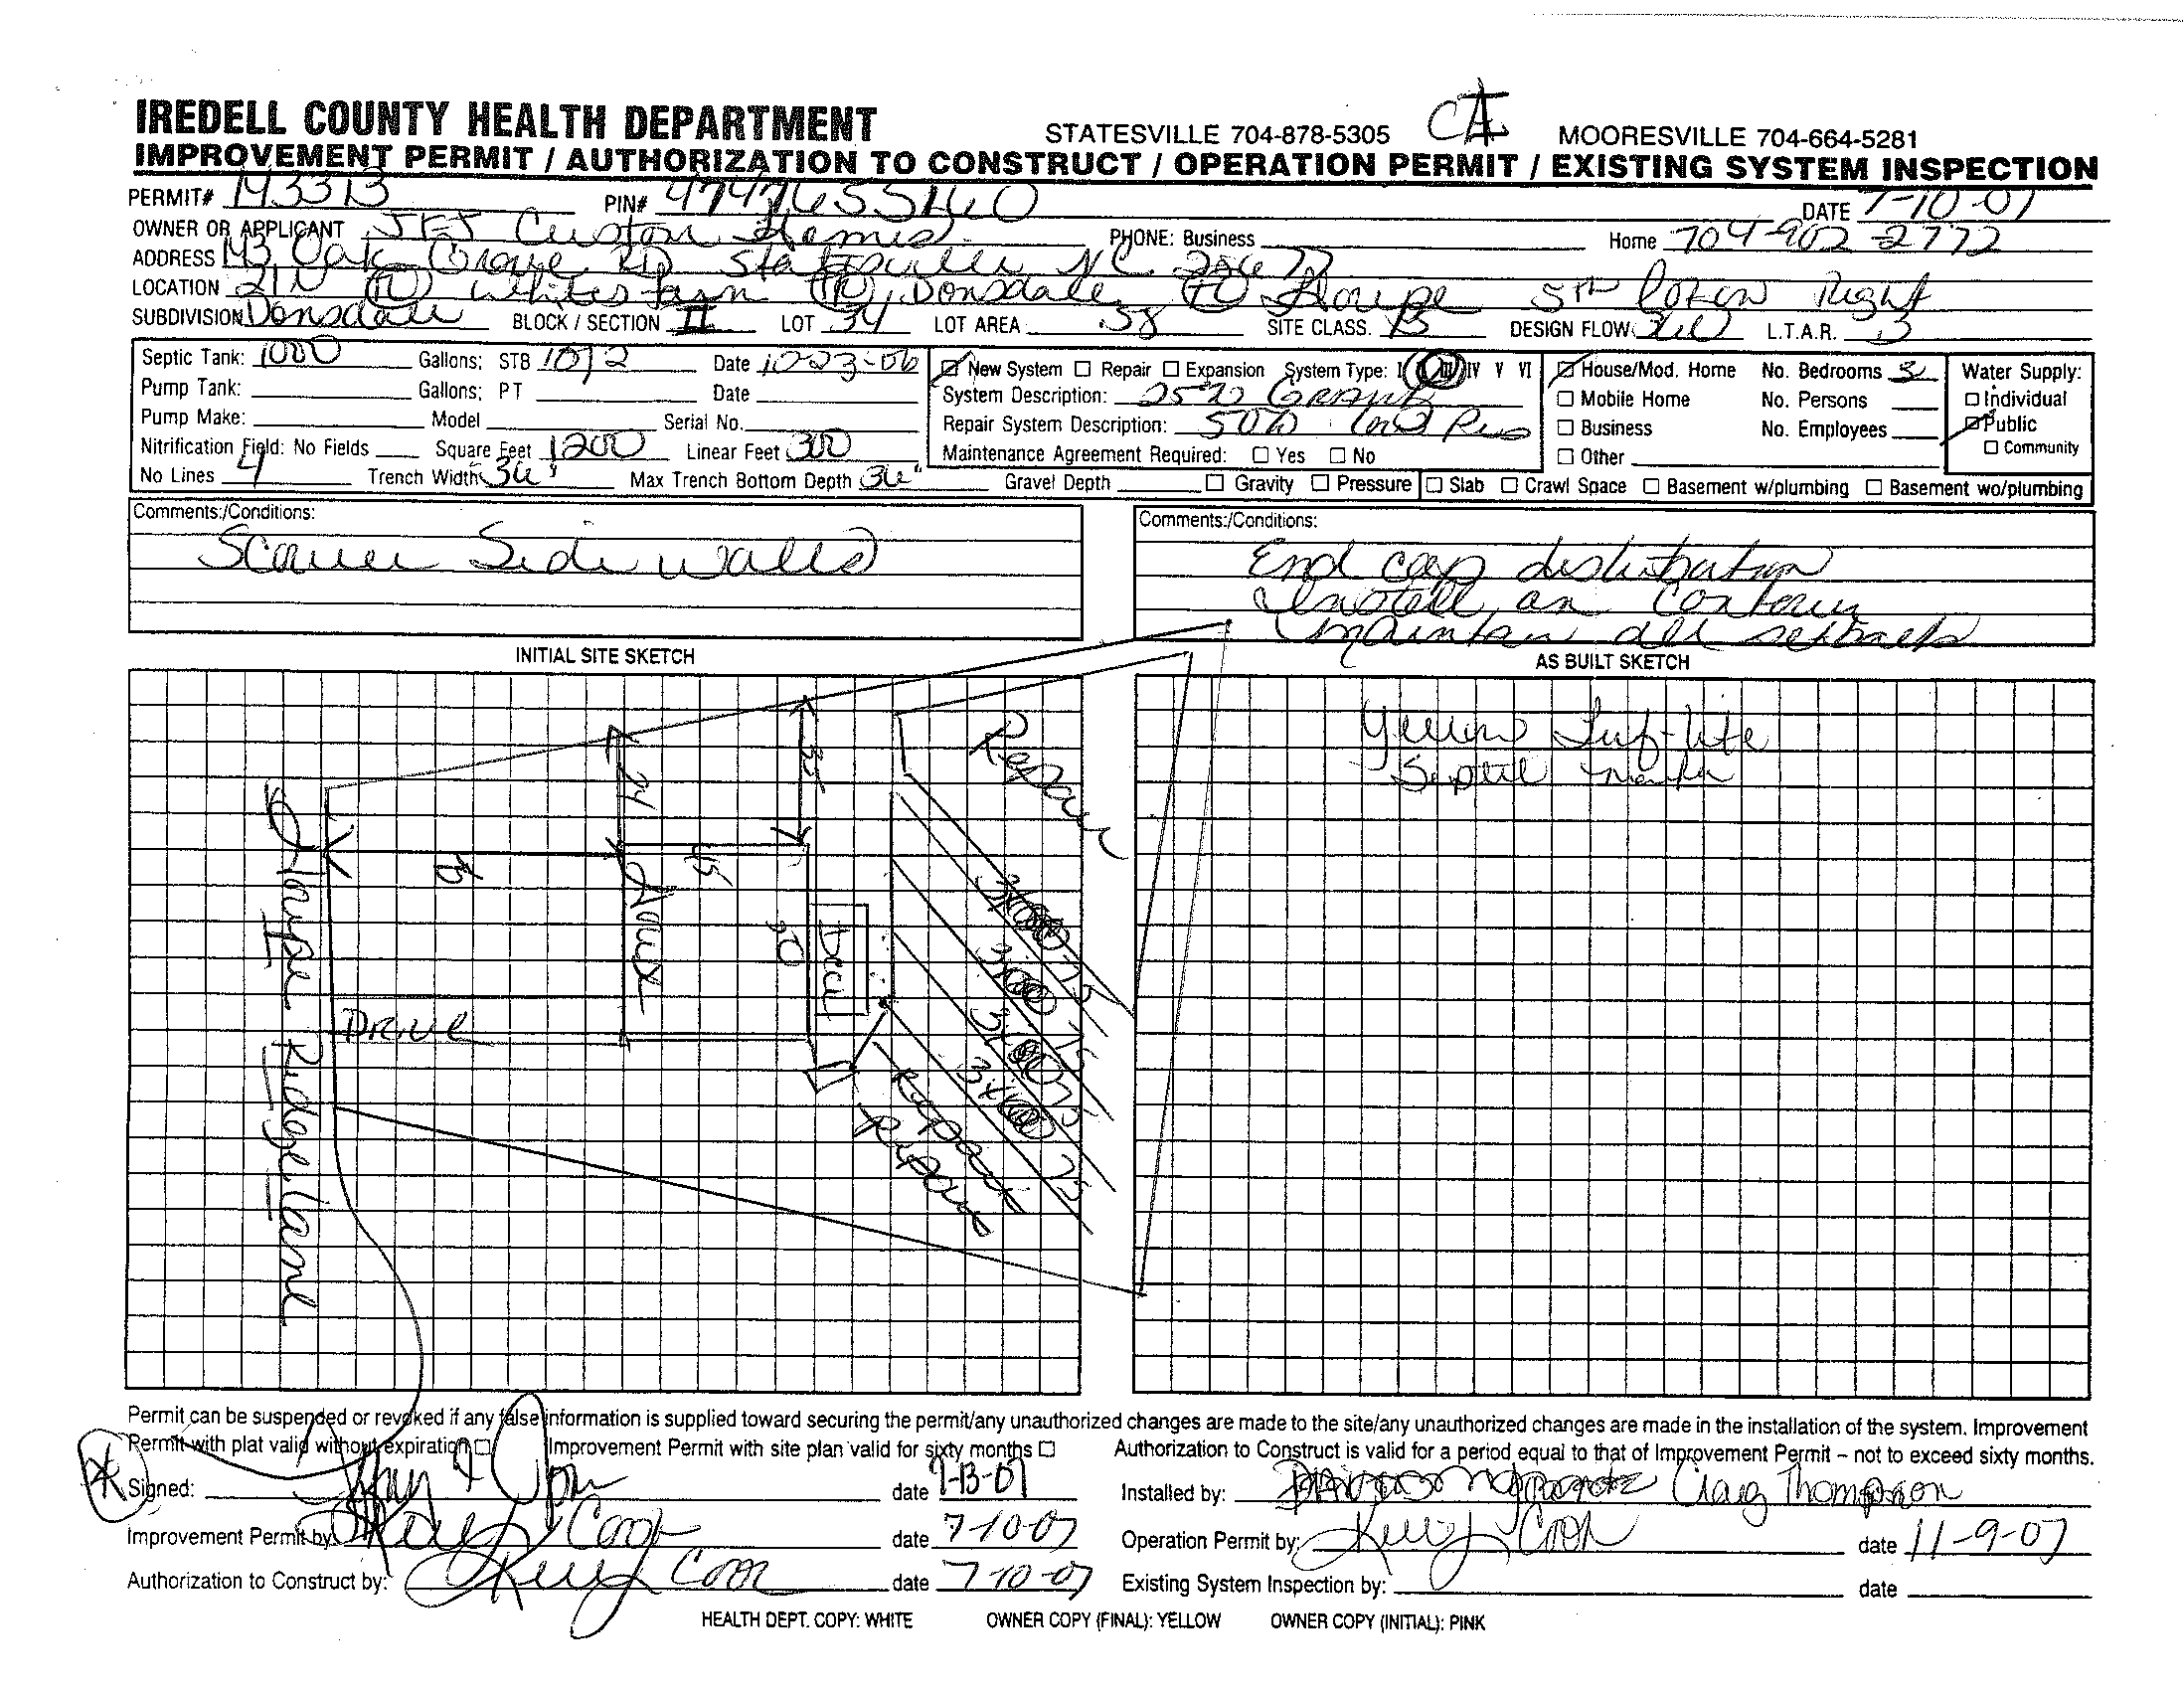 CA
IREDELL COUNTY HEALTH DEPARTMENT STATESVILLE 704-878-5305 MOORESVILLE 704-664-5281
IMPROVEMENT PERMIT / AUTHORIZATION TO CONSTRUCT / OPERATION PERMIT / EXISTING SYSTEM INSPECTION
PERMIT# 143313 PIN# DATE 7-10-07
OWNER OR APPLICANT Custom Homes PHONE: Business Home 704-902-2772
ADDRESS 143 Oak Grove RD Statesville NC 28677
LOCATION 21N Whites Farm Donsdale 5th lot on Right
SUBDIVISION Donsdale BLOCK / SECTION II LOT 34 LOT AREA .58 SITE CLASS. DESIGN FLOW L.T.A.R. .3
Septic Tank: 1000 Gallons; STB 1092 Date 10-23-06 New System Repair Expansion System Type: I II III IV V VI House/Mod. Home No. Bedrooms 3 Water Supply:
Pump Tank: Gallons; PT Date System Description: 25% Mobile Home No. Persons Individual
Pump Make: Model Serial No. Repair System Description: 50% Business No. Employees Public
Nitrification Field: No Fields Square Feet 1200 Linear Feet 300 Maintenance Agreement Required: Yes No Other Community
No Lines 4 Trench Width 36" Max Trench Bottom Depth 36" Gravel Depth Gravity Pressure Slab Crawl Space Basement w/plumbing Basement wo/plumbing
Comments:/Conditions: Comments:/Conditions:
Side walls
End cap distribution
Install on Contour
maintain all setbacks
INITIAL SITE SKETCH AS BUILT SKETCH
Septic
Repair
24
35
45
House
50
Drive
Ridge Lane
75
75
75
75
Repair
Permit can be suspended or revoked if any false information is supplied toward securing the permit/any unauthorized changes are made to the site/any unauthorized changes are made in the installation of the system. Improvement
Permit with plat valid without expiration Improvement Permit with site plan valid for sixty months Authorization to Construct is valid for a period equal to that of Improvement Permit – not to exceed sixty months.
Signed: date 7-13-07 Installed by: Craig Thompson
Improvement Permit by: Cook date 7-10-07 Operation Permit by: Cook date 11-9-07
Authorization to Construct by: Cook date 7-10-07 Existing System Inspection by: date
HEALTH DEPT. COPY: WHITE OWNER COPY (FINAL): YELLOW OWNER COPY (INITIAL): PINK